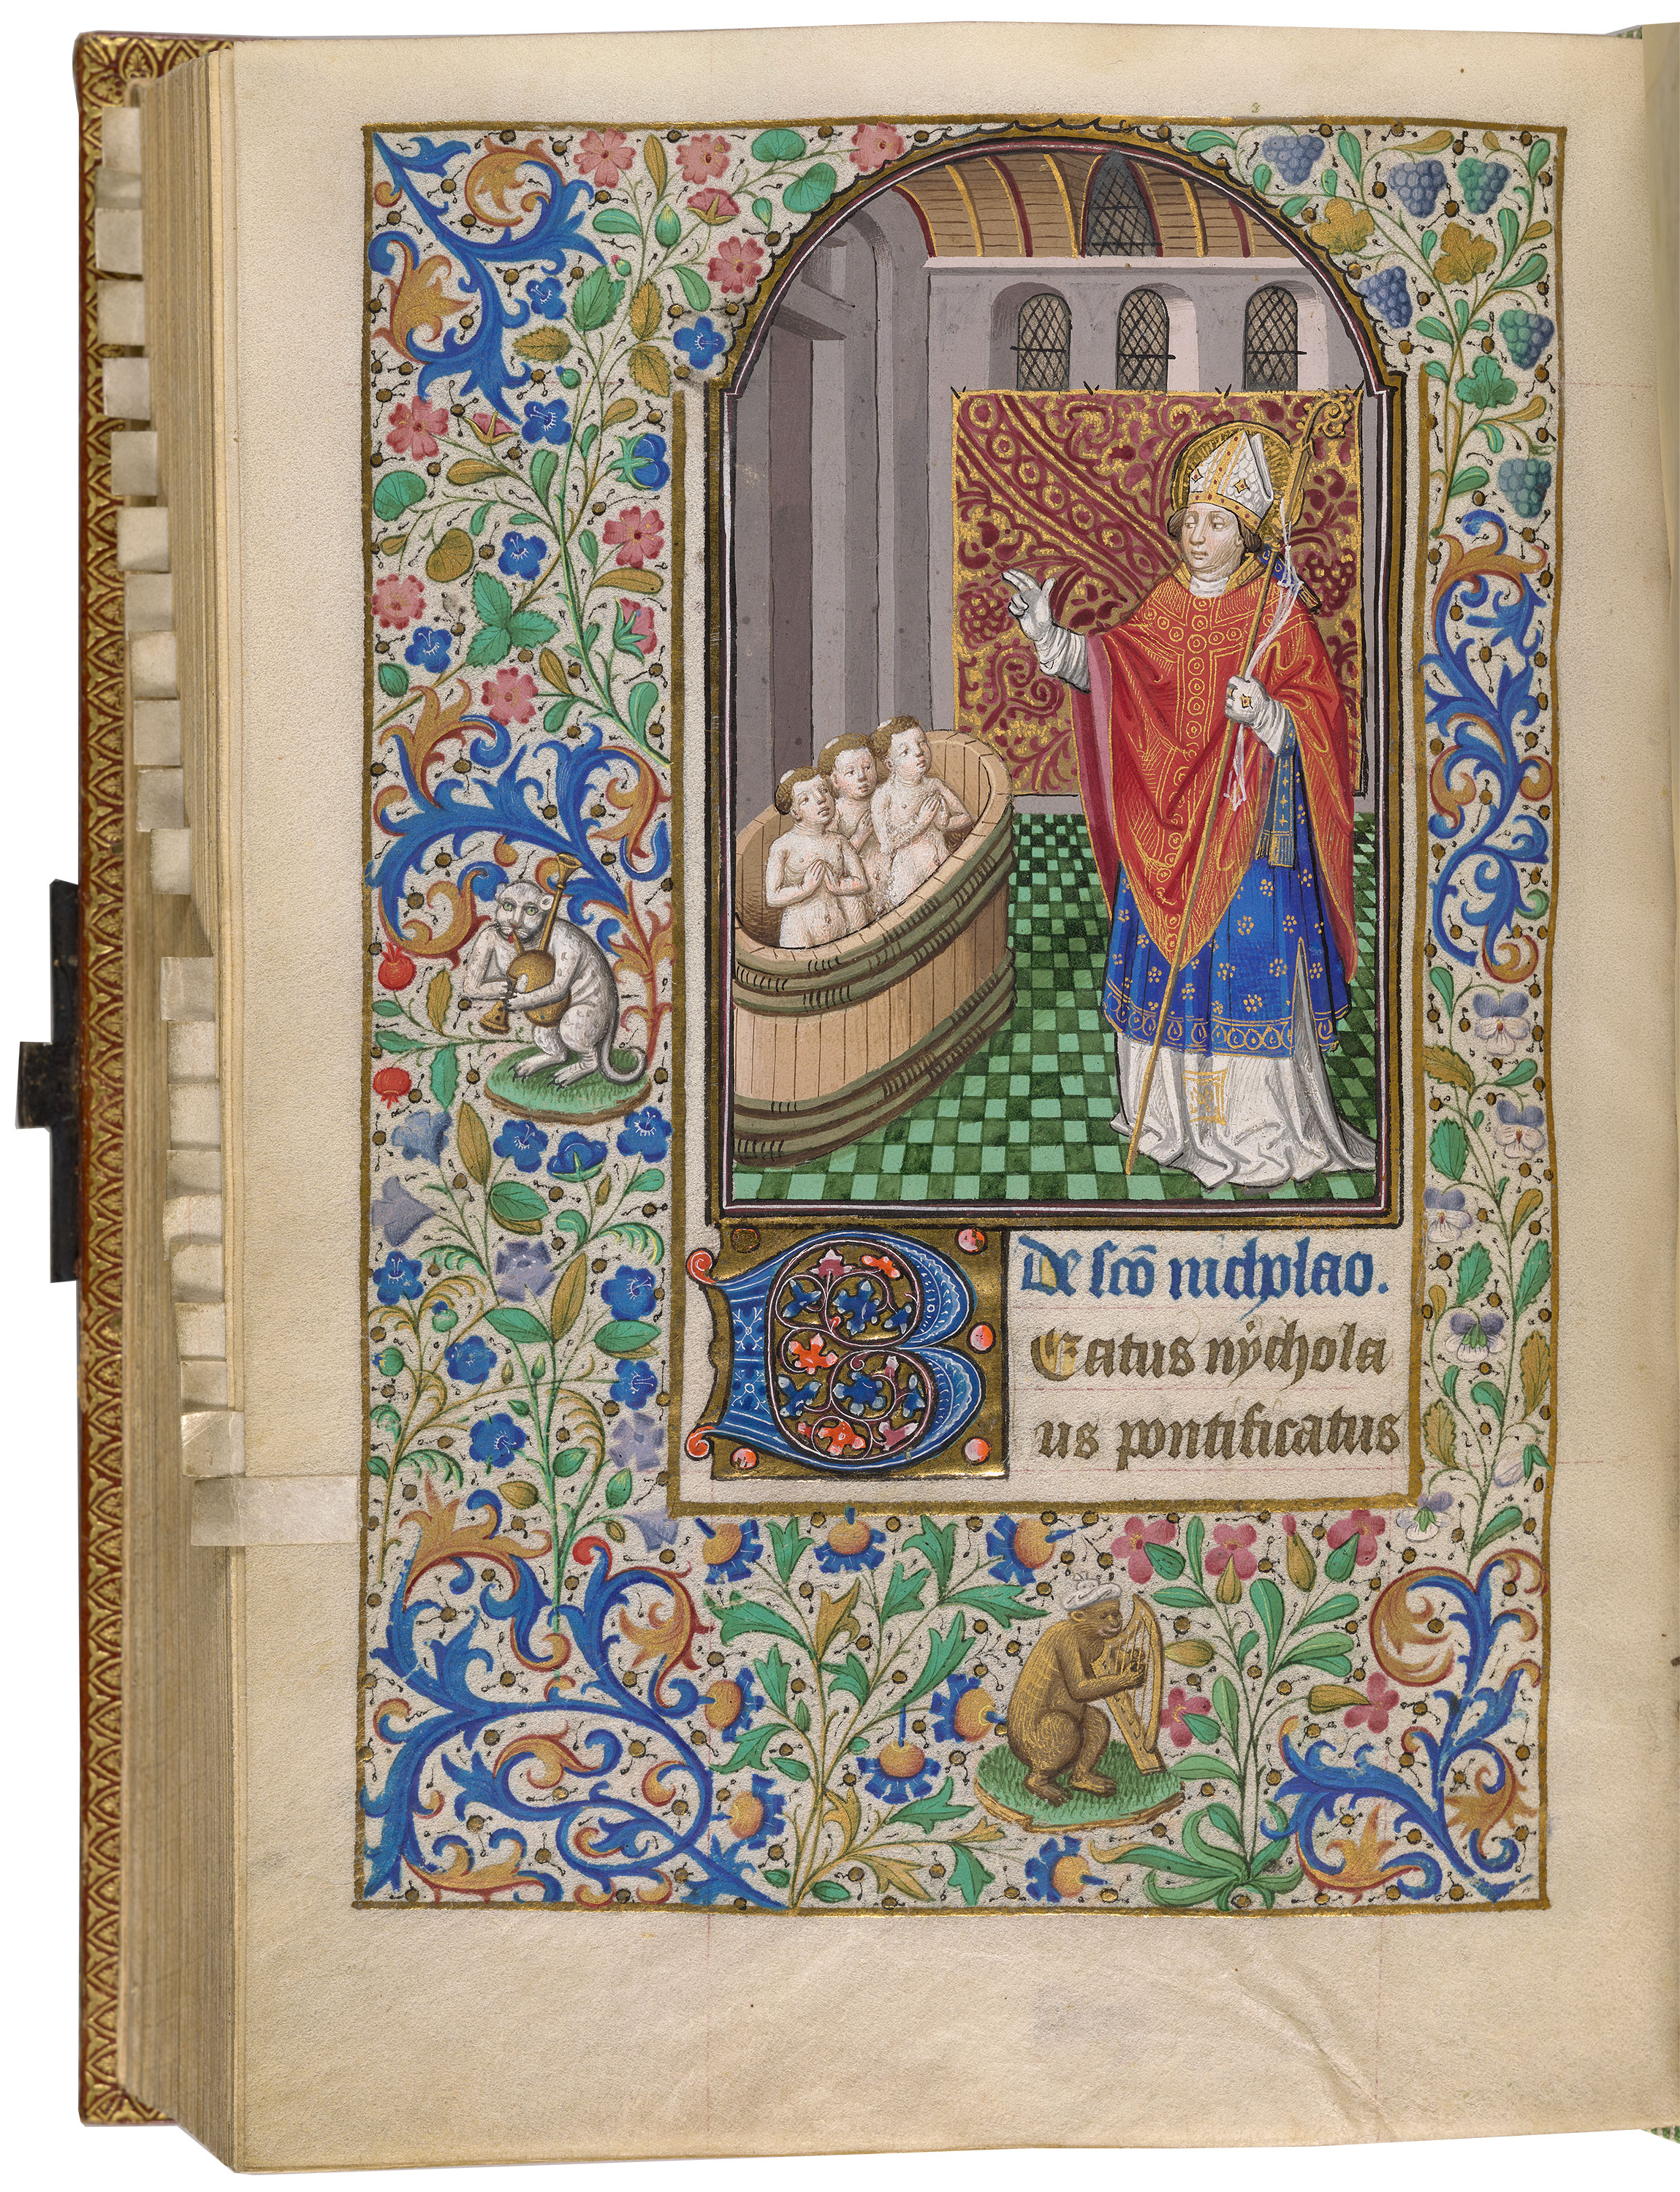 De scō nicholao.
BEatus nychola
us pontificatus